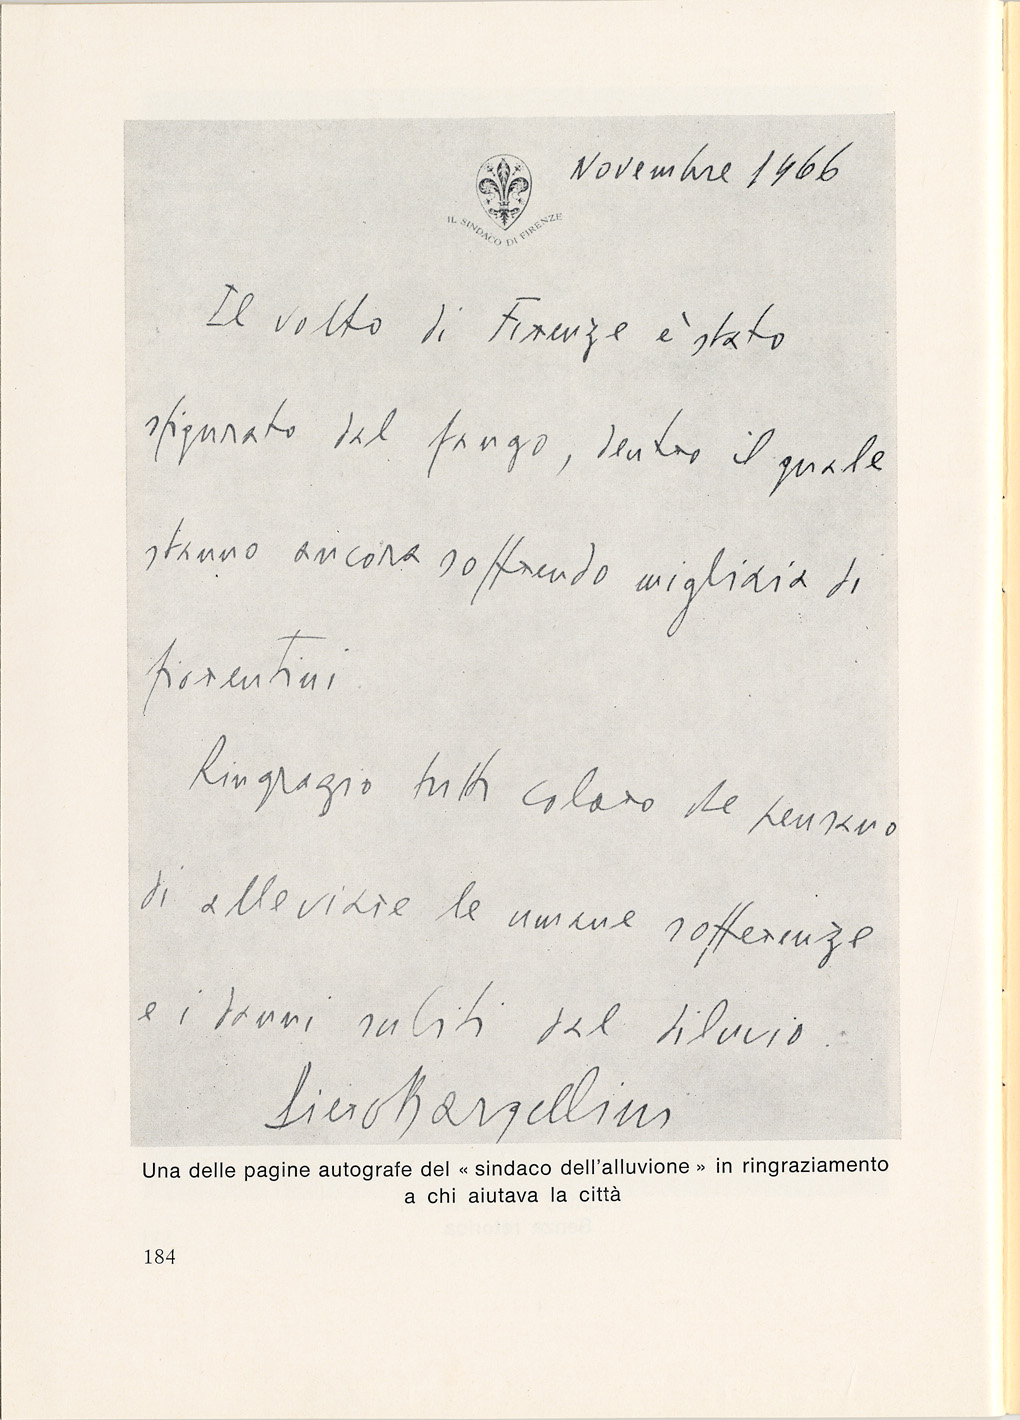 Novembre 1966
IL SINDACO DI FIRENZE
Il volto di Firenze è stato
sfigurato dal fango, dentro il quale
stanno ancora soffrendo migliaia di
fiorentini
Ringrazio tutti coloro che pensano
di alleviare le umane sofferenze
e i danni subiti dal diluvio.
Piero Bargellini
Una delle pagine autografe del « sindaco dell'alluvione » in ringraziamento
a chi aiutava la città
184